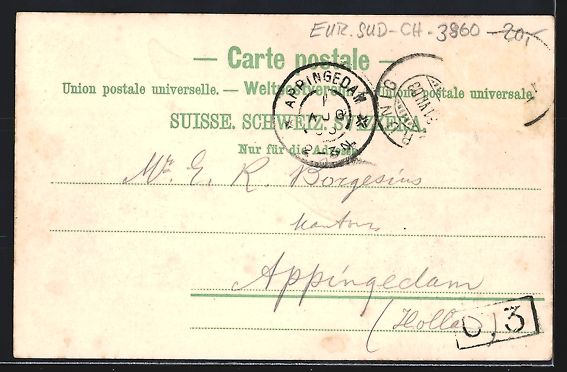 EUR. SUD-CH-3860-20.-
— Carte postale —
Union postale universelle. — Weltpostverein. — Unione postale universale.
SUISSE. SCHWEIZ. SVIZZERA.
Nur für die Adresse.
APPINGEDAM
Mr. E. R. Borgesius
Appingedam
(Holland
0,3